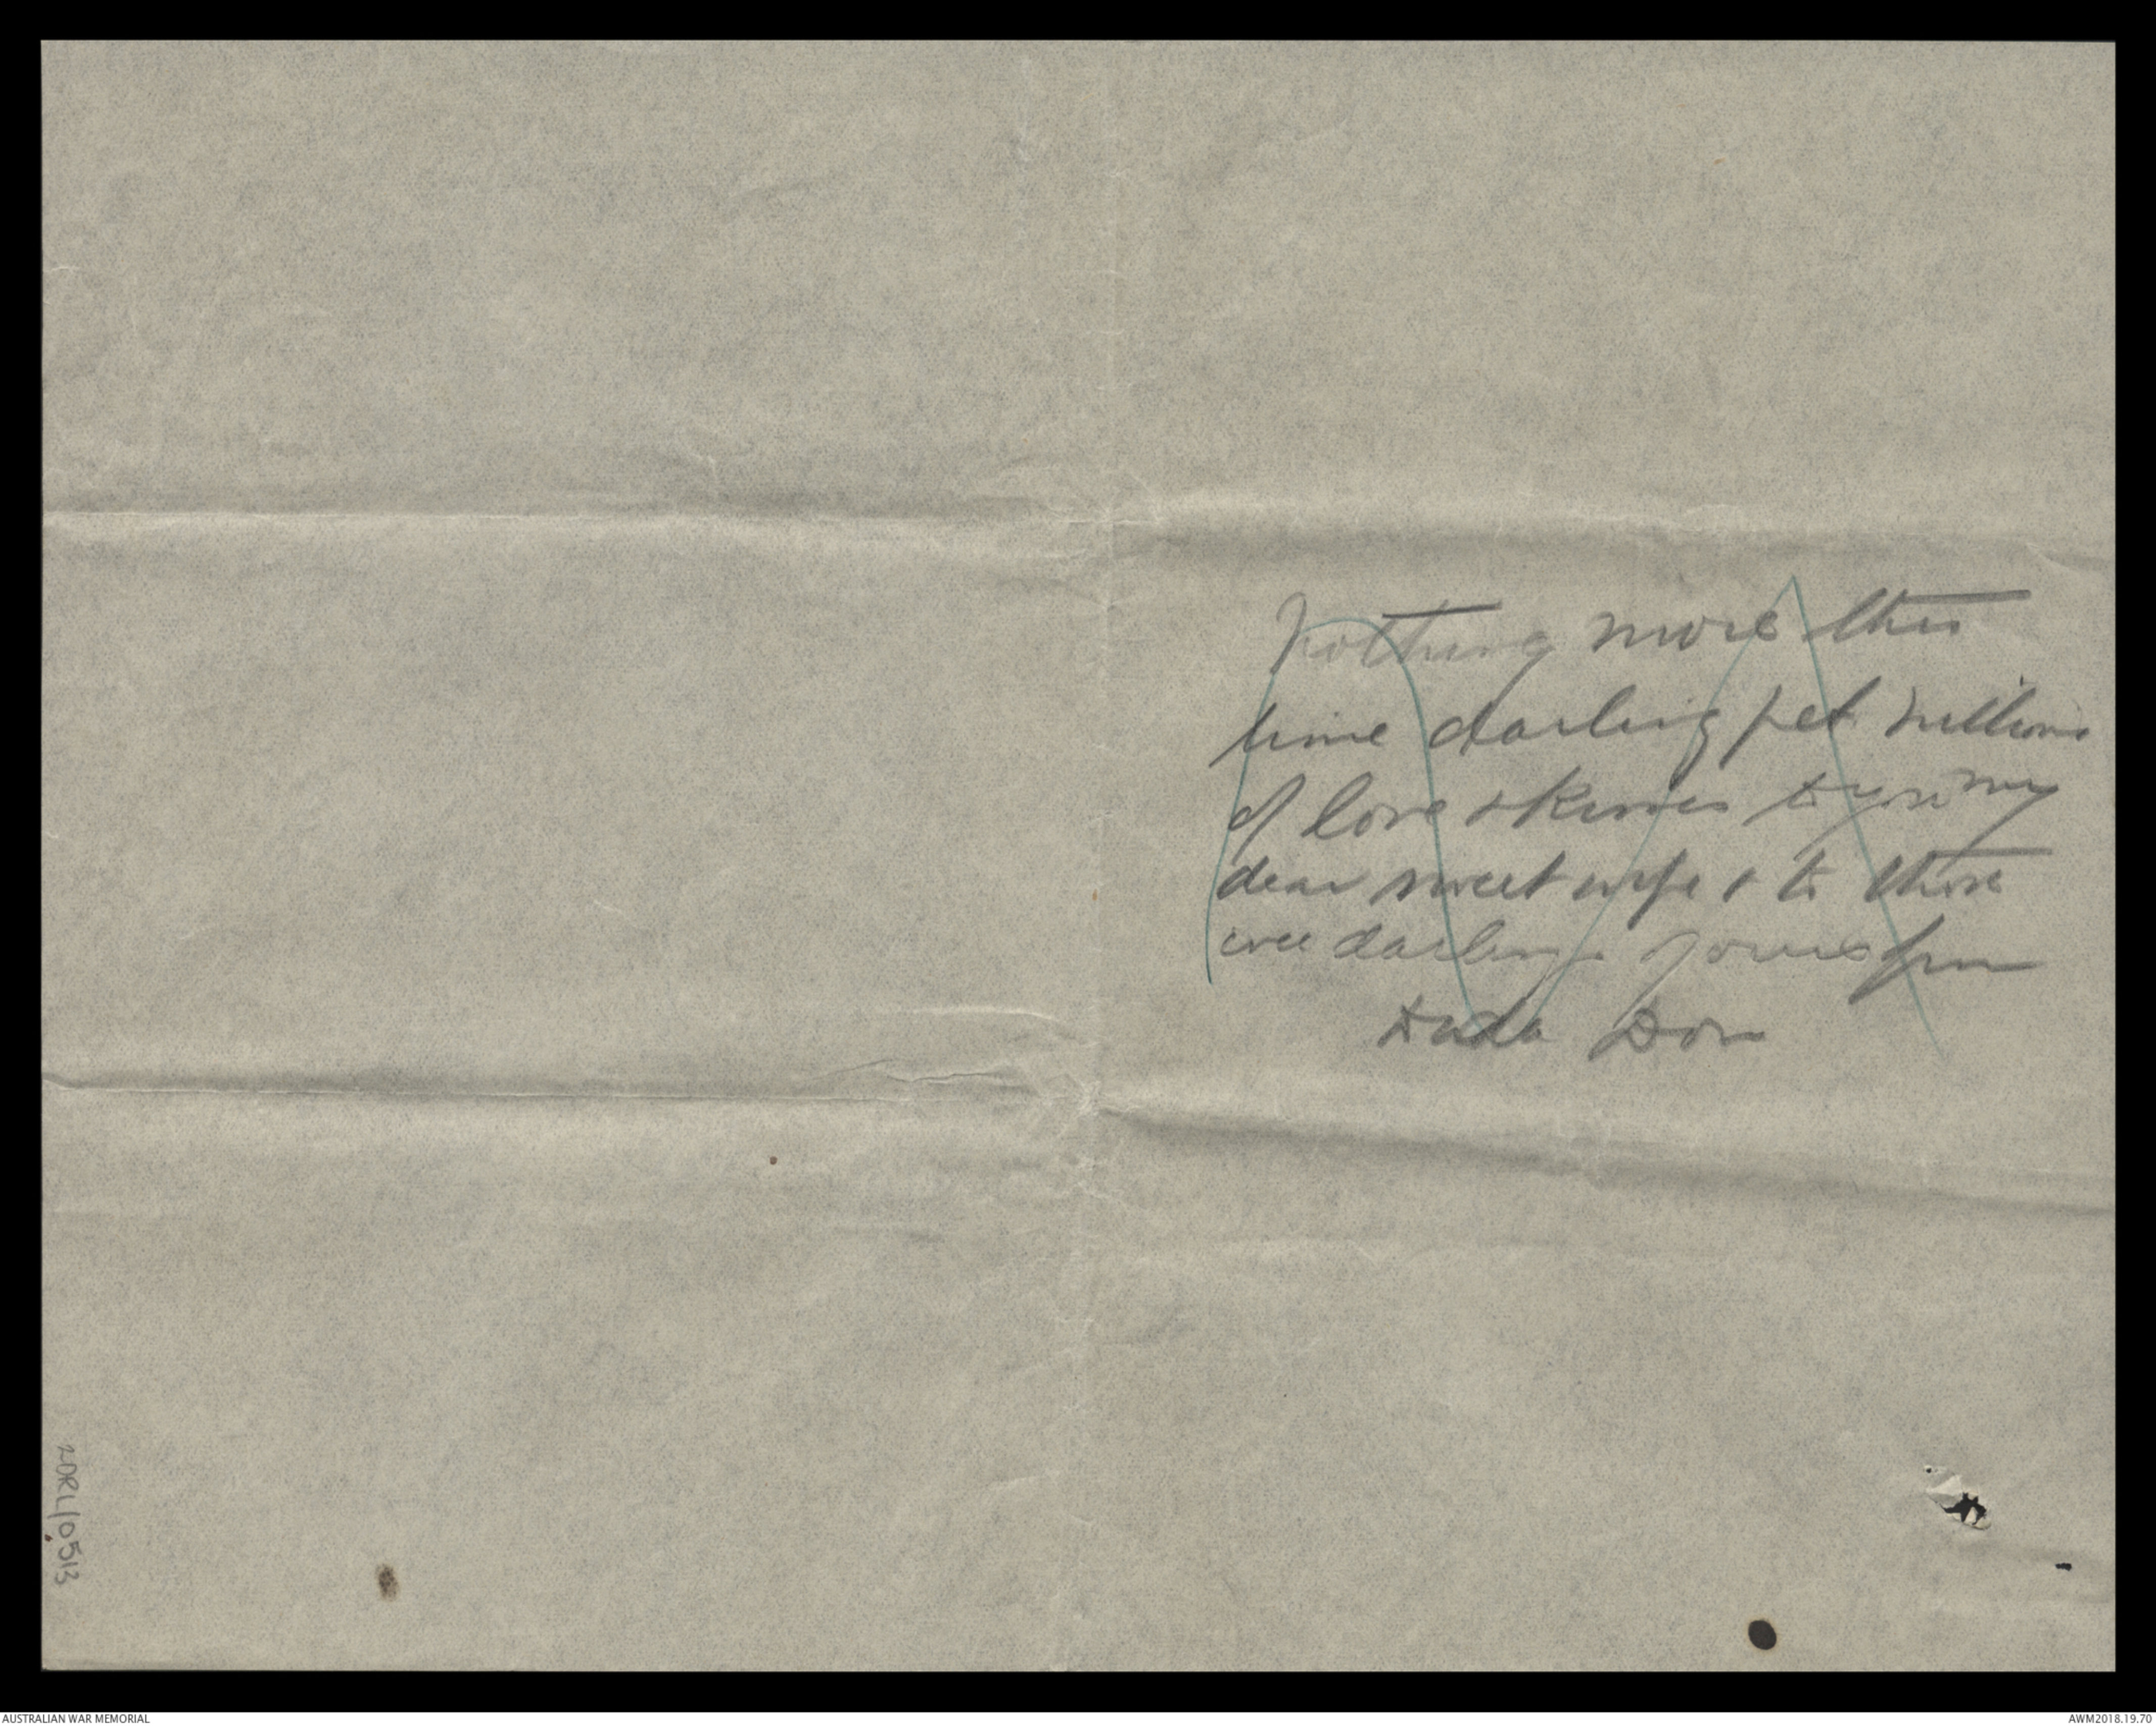 Nothing more this
time darling pet millions
of love & kisses to you my
dear sweet wife & to those
wee darlings yours from
Dada Don
2DRL/0513
AUSTRALIAN WAR MEMORIAL
AWM2018.19.70